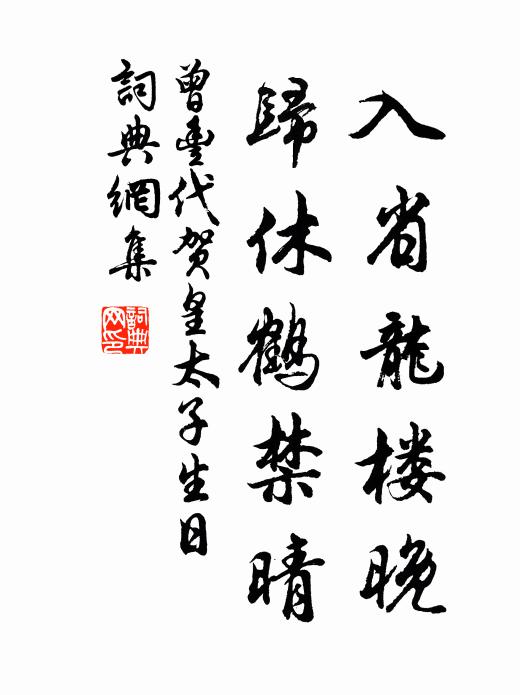 入省龍楼晚
歸休鶴禁晴
曾豐代贺皇太子生日
詞典網集
詞典网印